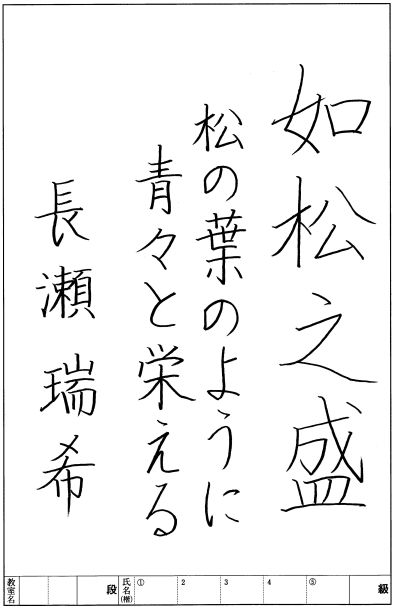 如松之盛
松の葉のように
青々と栄える
長瀬瑞希
級 ⑤ 4 3 2 ① 氏名(楷) 段 教室名